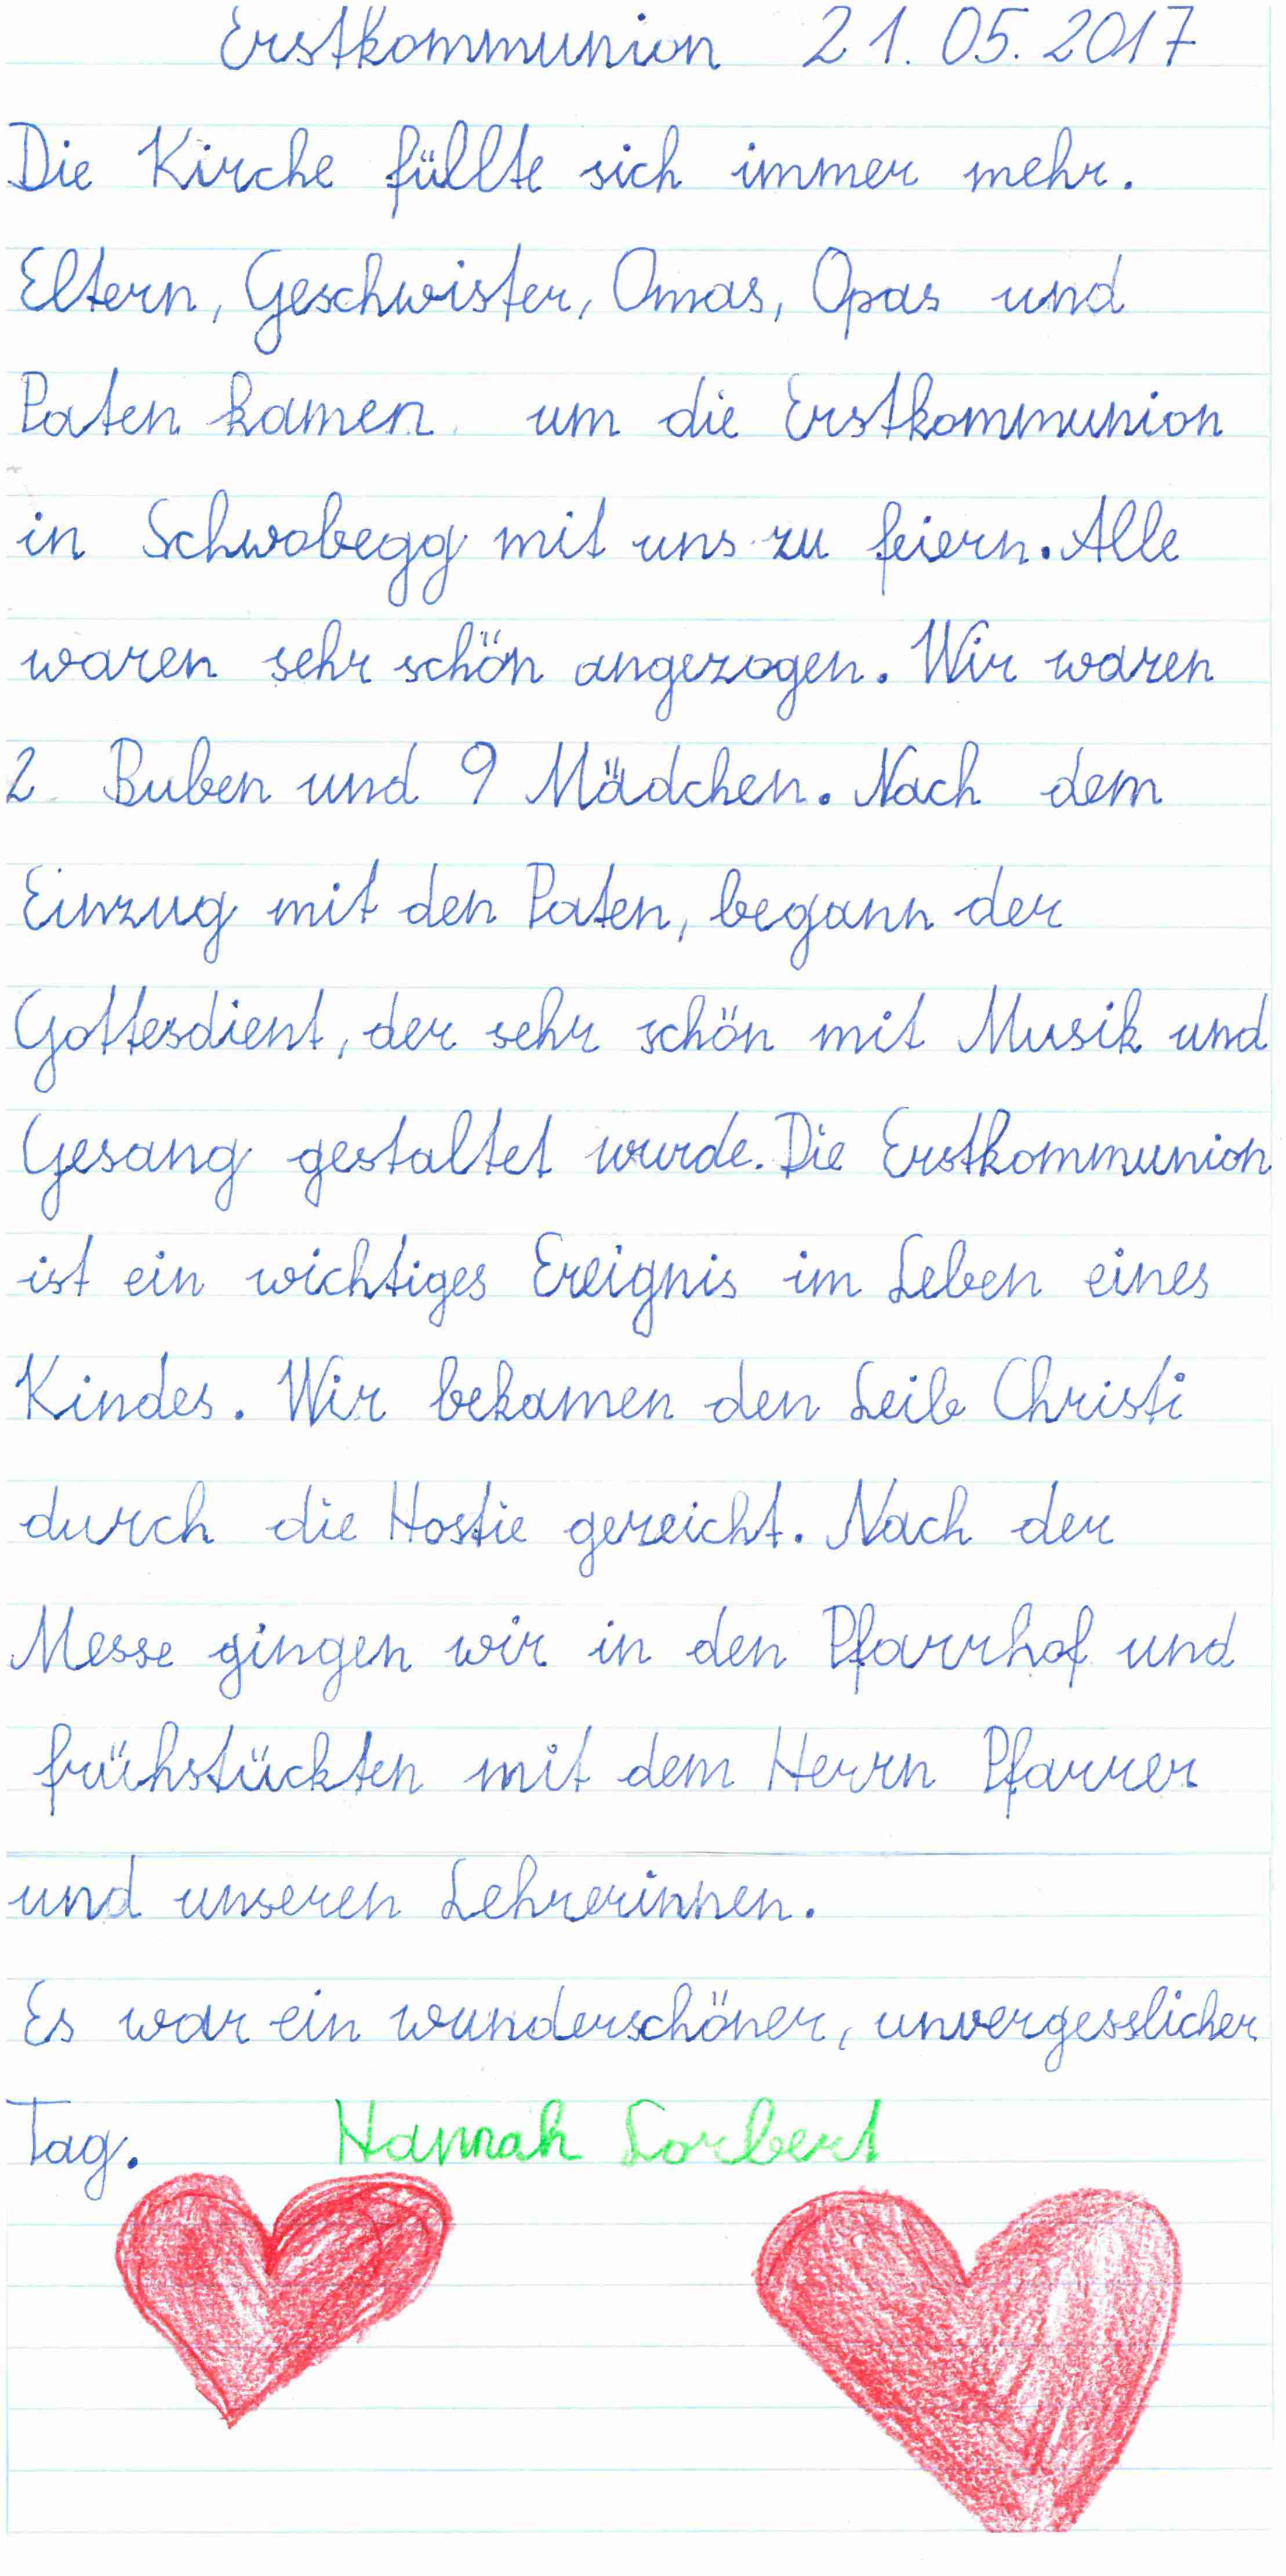 Erstkommunion 21. 05. 2017
Die Kirche füllte sich immer mehr.
Eltern, Geschwister, Omas, Opas und
Paten kamen um die Erstkommunion
in Schwabegg mit uns zu feiern. Alle
waren sehr schön angezogen. Wir waren
2 Buben und 9 Mädchen. Nach dem
Einzug mit den Paten, begann der
Gottesdient, der sehr schön mit Musik und
Gesang gestaltet wurde. Die Erstkommunion
ist ein wichtiges Ereignis im Leben eines
Kindes. Wir bekamen den Leib Christi
durch die Hostie gereicht. Nach der
Messe gingen wir in den Pfarrhof und
frühstückten mit dem Herrn Pfarrer
und unseren Lehrerinnen.
Es war ein wunderschöner, unvergesslicher
Tag. Hannah Lorbert